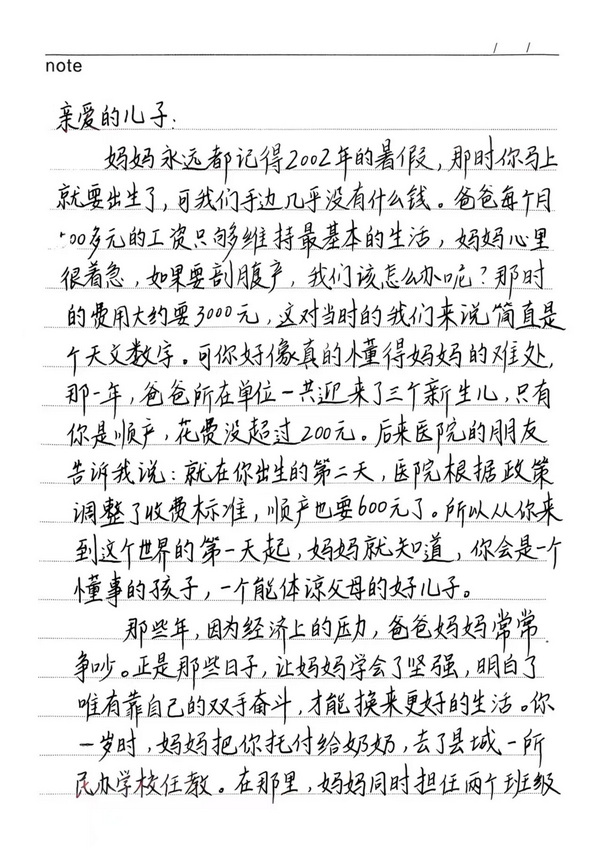 / /
note
亲爱的儿子:
妈妈永远都记得2002年的暑假,那时你马上
就要出生了,可我们手边几乎没有什么钱。爸爸每个月
00多元的工资只够维持最基本的生活,妈妈心里
很着急,如果要剖腹产,我们该怎么办呢?那时
的费用大约要3000元,这对当时的我们来说简直是
个天文数字。可你好像真的懂得妈妈的难处,
那一年,爸爸所在单位一共迎来了三个新生儿,只有
你是顺产,花费没超过200元。后来医院的朋友
告诉我说:就在你出生的第二天,医院根据政策
调整了收费标准,顺产也要600元了。所以从你来
到这个世界的第一天起,妈妈就知道,你会是一个
懂事的孩子,一个能体谅父母的好儿子。
那些年,因为经济上的压力,爸爸妈妈常常
争吵。正是那些日子,让妈妈学会了坚强,明白了
唯有靠自己的双手奋斗,才能换来更好的生活。你
一岁时,妈妈把你托付给奶奶,去了县城一所
民办学校任教。在那里,妈妈同时担任两个班级